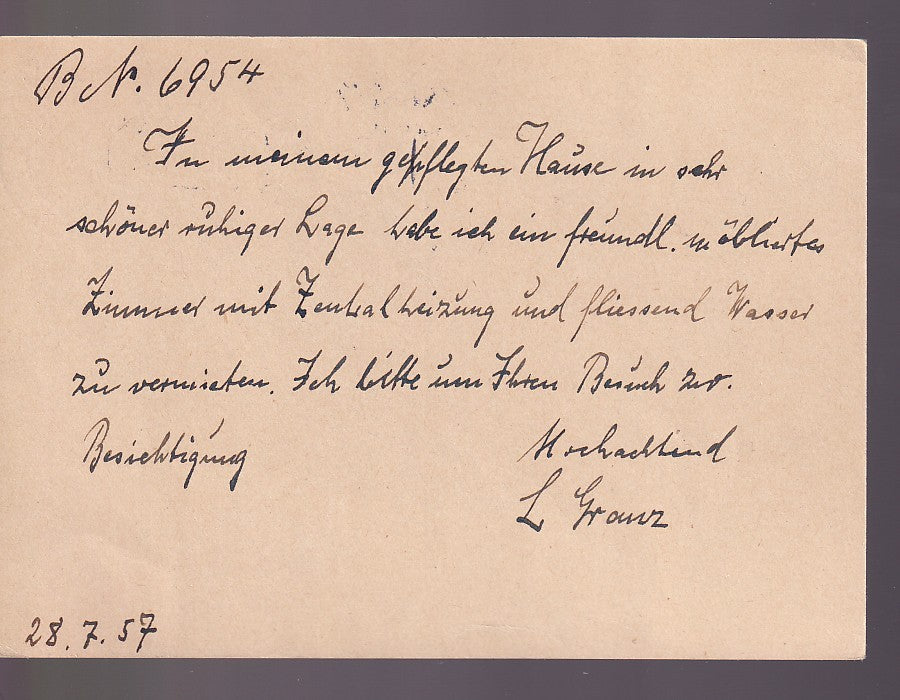 B N. 6954
In meinem gepflegten Hause in sehr
schöner ruhiger Lage habe ich ein freundl. möbliertes
Zimmer mit Zentralheizung und fliessend Wasser
zu vermieten. Ich bitte um Ihren Besuch zw.
Besichtigung
Hochachtend
L Granz
28.7.57